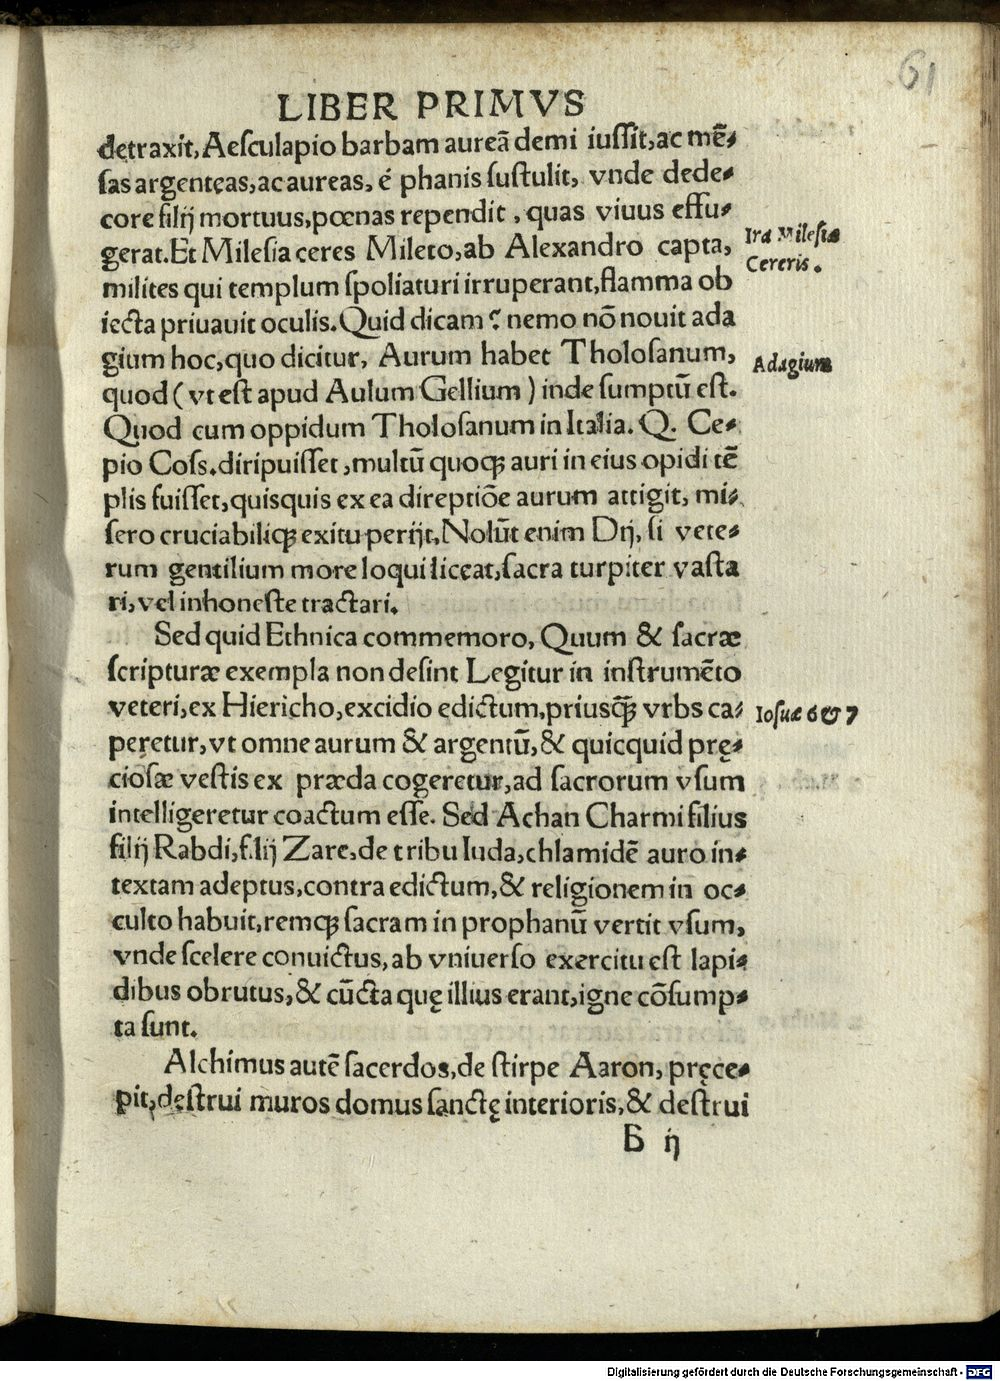 61
LIBER PRIMVS
detraxit, Aeſculapio barbam aureā demi iuſſit, ac mē⸗
ſas argenteas, ac aureas, é phanis ſuſtulit, vnde dede⸗
core filij mortuus, pœnas rependit, quas viuus effu⸗
gerat. Et Mileſia ceres Mileto, ab Alexandro capta,
Ira Mileſiæ
Cereris.
milites qui templum ſpoliaturi irruperant, flamma ob
iecta priuauit oculis. Quid dicam? nemo nō nouit ada
gium hoc, quo dicitur, Aurum habet Tholoſanum,
Adagium
quod (vt eſt apud Aulum Gellium) inde ſumptū eſt.
Quod cum oppidum Tholoſanum in Italia. Q. Ce⸗
pio Coſs. diripuiſſet, multū quoqꝫ auri in eius opidi tē
plis fuiſſet, quisquis ex ea direptiōe aurum attigit, mi⸗
ſero cruciabiliqꝫ exitu perijt, Nolūt enim Dij, ſi vete⸗
rum gentilium more loqui liceat, ſacra turpiter vaſta
ri, vel inhoneſte tractari.
Sed quid Ethnica commemoro, Quum & ſacræ
ſcripturæ exempla non deſint Legitur in inſtrumēto
veteri, ex Hiericho, excidio edictum, priusqꝫ̄ vrbs ca⸗
Ioſuæ 6 & 7
peretur, vt omne aurum & argentū, & quicquid prę⸗
cioſæ veſtis ex præda cogeretur, ad ſacrorum vſum
intelligeretur coactum eſſe. Sed Achan Charmi filius
filij Rabdi, filij Zare, de tribu Iuda, chlamidē auro in⸗
textam adeptus, contra edictum, & religionem in oc⸗
culto habuit, remqꝫ ſacram in prophanū vertit vſum,
vnde ſcelere conuictus, ab vniuerſo exercitu eſt lapi⸗
dibus obrutus, & cūcta quę illius erant, igne cōſump⸗
ta ſunt.
Alchimus autē ſacerdos, de ſtirpe Aaron, pręce⸗
pit, deſtrui muros domus ſanctę interioris, & deſtrui
B ij
Digitalisierung gefördert durch die Deutsche Forschungsgemeinschaft - DFG